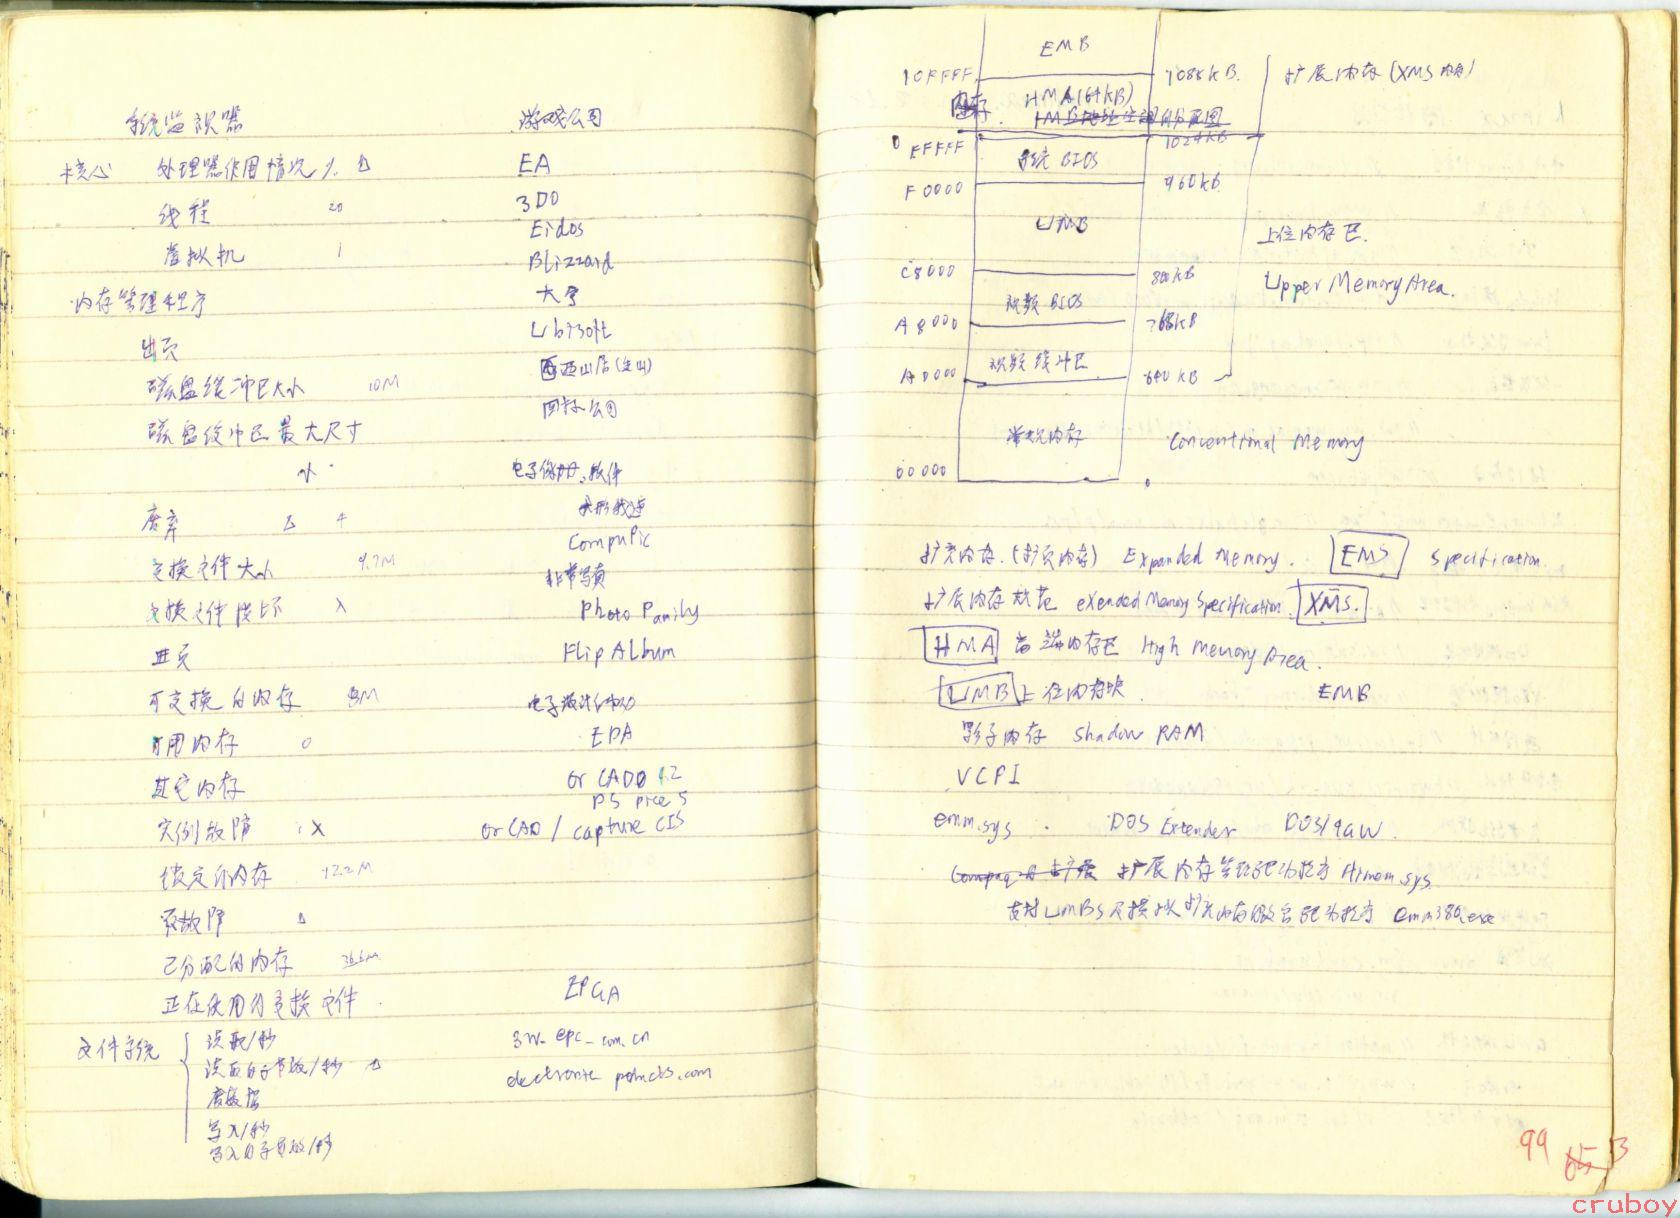 系统监视器
核心 处理器作用情况 % △
线程 20
虚拟机 1
内存管理程序
出页
磁盘缓冲区大小 10M
磁盘缓冲区最大尺寸
小
废弃 △ 4
交换文件大小 9.7M
交换文件损坏 X
进页
可交换的内存 8M
可用内存 0
其它内存
实例故障 X
锁定的内存 12.2M
页故障 △
已分配的内存 36.6M
正在使用的交换文件
文件系统
读取/秒
读取的字节数/秒
废数据
写入/秒
写入的字节数/秒
游戏公司
EA
3DO
Eidos
Blizzard
大宇
Ubisoft
西山居(金山)
电子像册 软件
CompuPic
非常写真
Photo Family
Flip Album
EDA
or CAD 9.2
PS pice 5
or CAD / capture CIS
EPGA
3W. epc. com. cn
EMB
10FFFF 1088KB 扩展内存 (XMS内存)
HMA (64KB)
内存
FFFFF 1024KB
系统 BIOS
F0000 960KB
UMB
上位内存区
C8000 800KB
Upper Memory Area.
视频 BIOS
A8000 768KB
视频缓冲区
A0000 640KB
常规内存 Conventional Memory
00000
扩充内存 (扩页内存) Expanded Memory. EMS Specification.
扩展内存规范 eXended Memory Specification. XMS.
HMA 高端内存区 High Memory Area.
UMB 上位内存块 EMB
影子内存 Shadow RAM
VCPI
emm.sys DOS Extender DOS/4GW.
扩展内存管理驱动程序 Himem.sys
支持UMBS及模拟扩充内存的 驱动程序 emm386.exe
99 65 13
cruboy